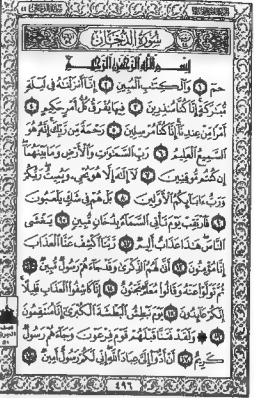 سورة الدخان
بسم الله الرحمن الرحيم
حم ١ والكتب المبين ٢ إنا أنزلنه في ليلة
مبركة إنا كنا منذرين ٣ فيها يفرق كل أمر حكيم ٤
أمرا من عندنا إنا كنا مرسلين ٥ رحمة من ربك إنه هو
السميع العليم ٦ رب السموت والأرض وما بينهما
إن كنتم موقنين ٧ لا إله إلا هو يحي ويميت ربكم
ورب ءابائكم الأولين ٨ بل هم في شك يلعبون
٩ فارتقب يوم تأتي السماء بدخان مبين ١٠ يغشى
الناس هذا عذاب أليم ١١ ربنا اكشف عنا العذاب
إنا مؤمنون ١٢ أنى لهم الذكرى وقد جاءهم رسول مبين ١٣
ثم تولوا عنه وقالوا معلم مجنون ١٤ إنا كاشفوا العذاب قليلا
إنكم عائدون ١٥ يوم نبطش البطشة الكبرى إنا منتقمون
١٦ ولقد فتنا قبلهم قوم فرعون وجاءهم رسول
كريم ١٧ أن أدوا إلي عباد الله إني لكم رسول أمين ١٨
٤٩٦